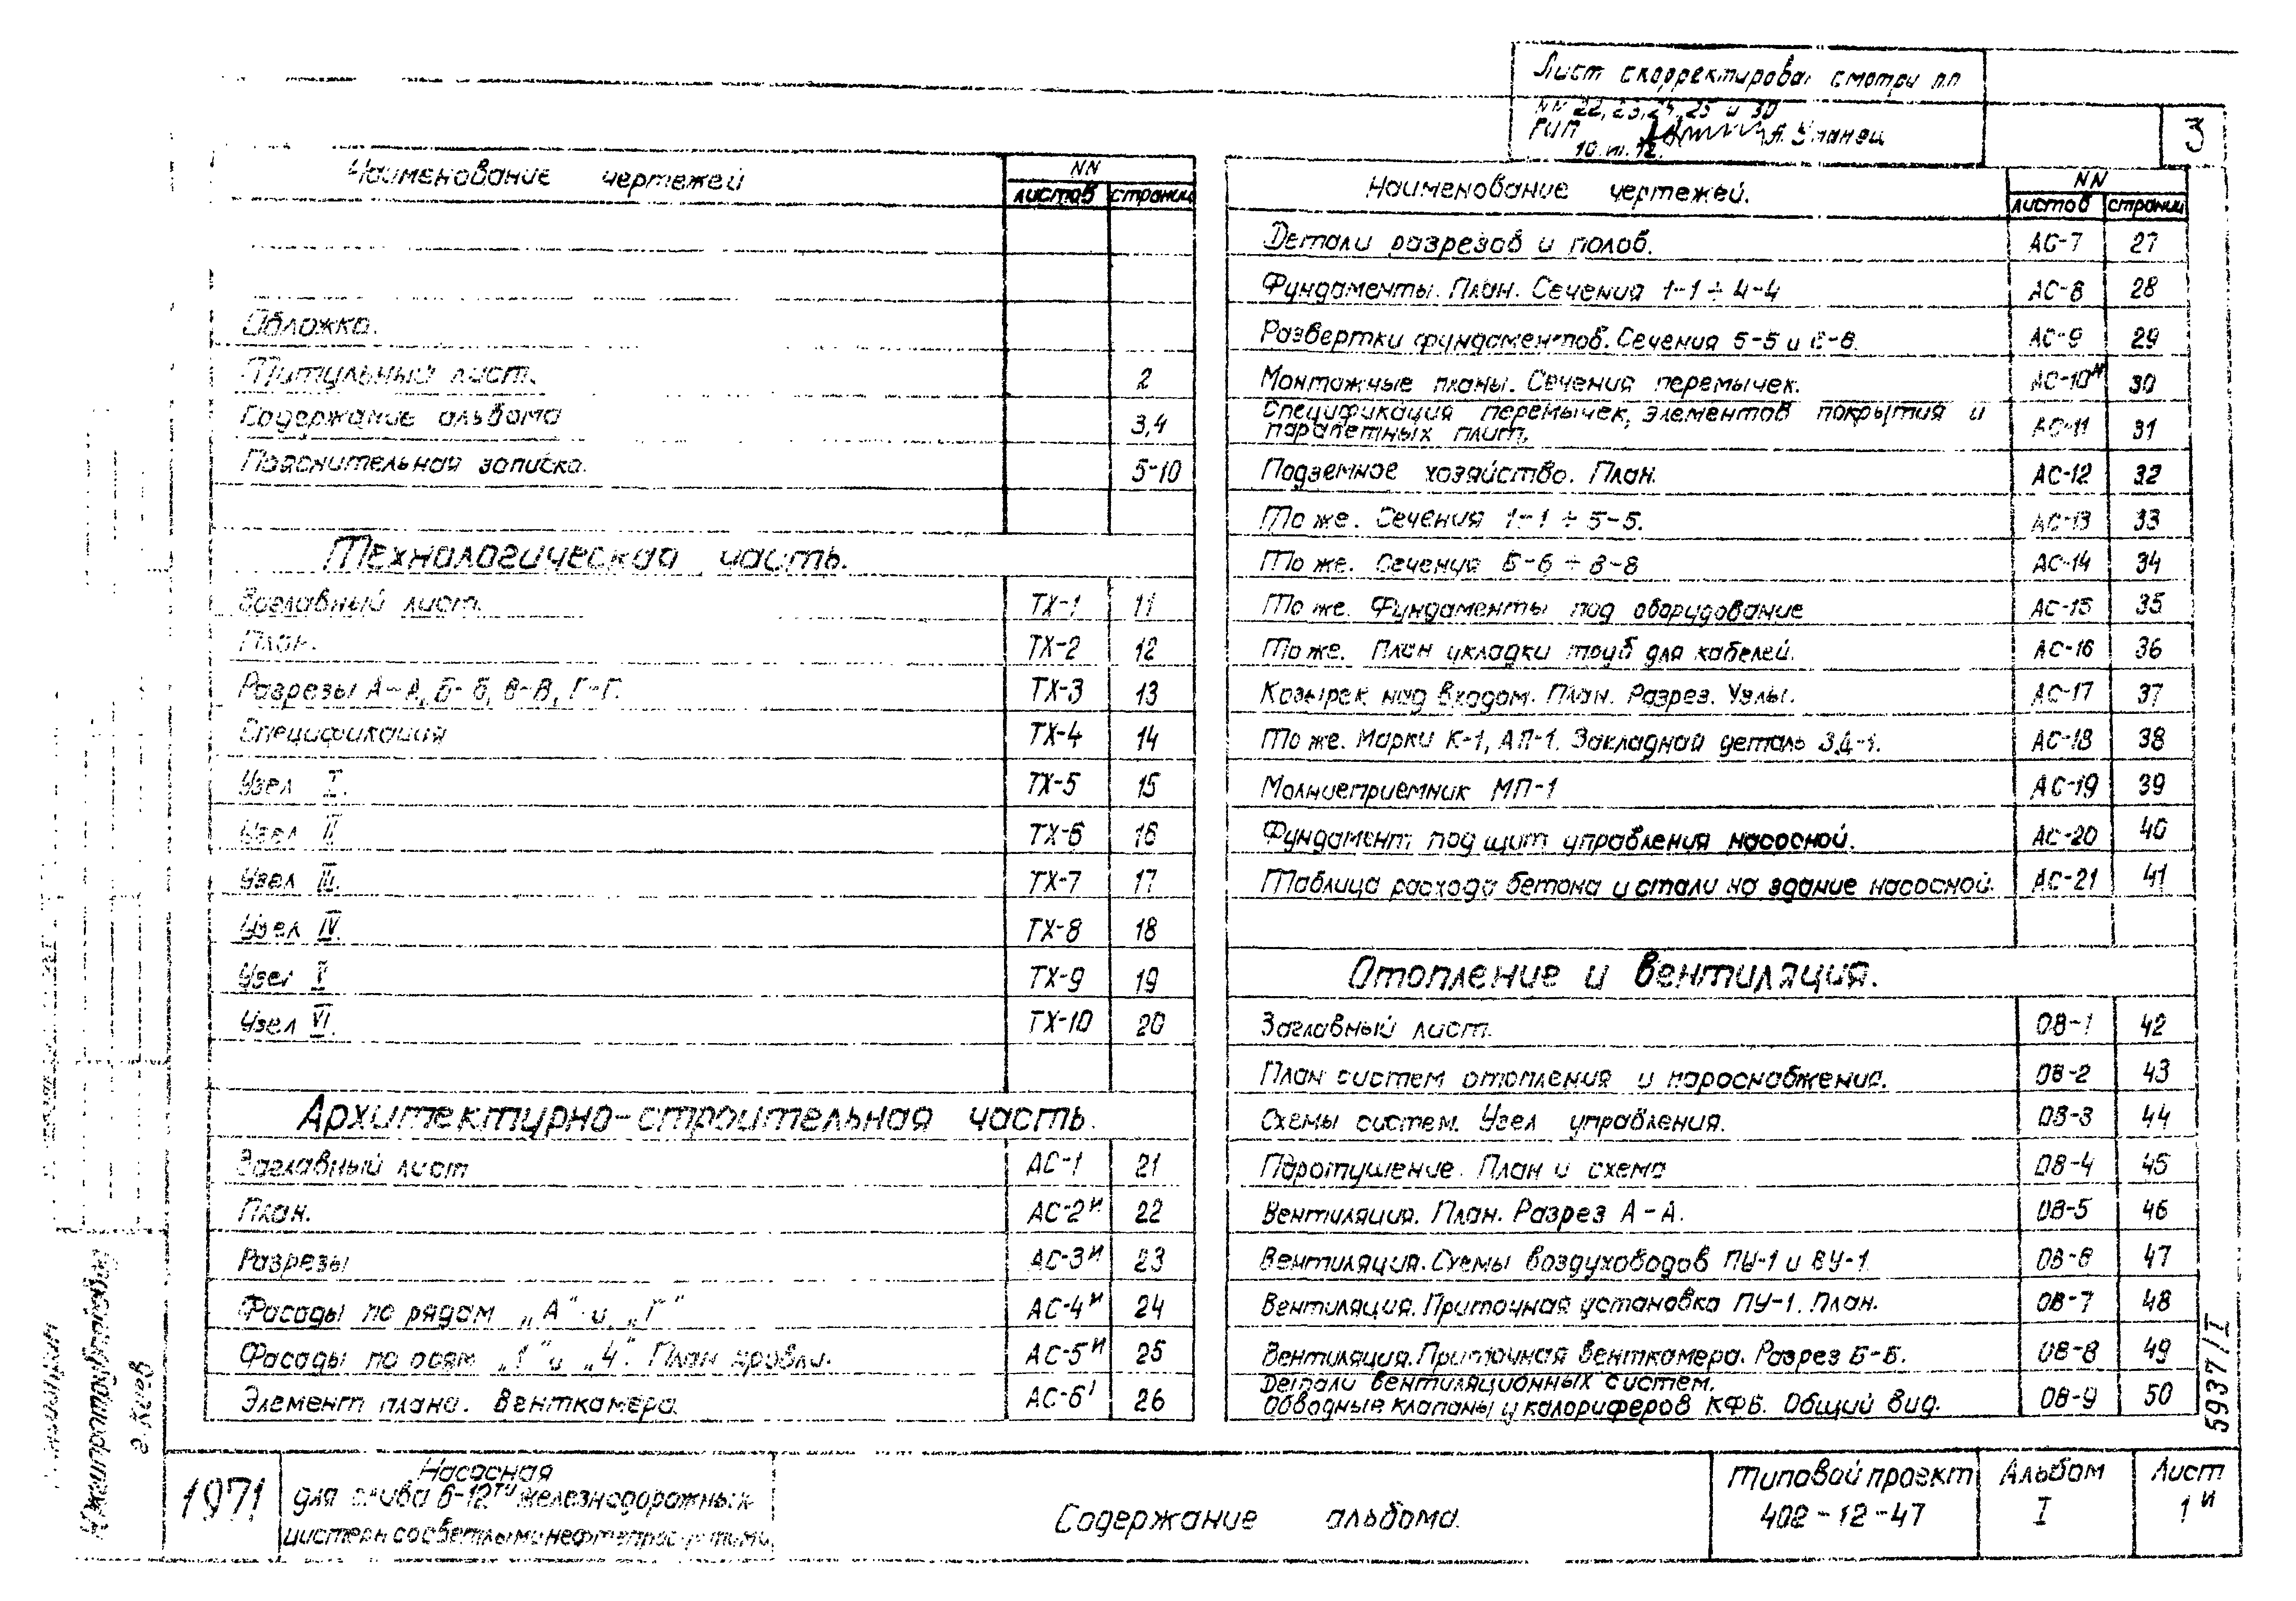 Лист скорректирован смотри лл
NN 22, 23, 24, 25 и 30
ГИП Уланец
3
Наименование чертежей
NN
листов страниц
Обложка.
Титульный лист. 2
Содержание альбома 3,4
Пояснительная записка. 5-10
Технологическая часть.
Заглавный лист. ТХ-1 11
План. ТХ-2 12
Разрезы А-А, Б-Б, В-В, Г-Г. ТХ-3 13
Спецификация ТХ-4 14
Узел I. ТХ-5 15
Узел II ТХ-6 16
Узел III. ТХ-7 17
Узел IV. ТХ-8 18
Узел V ТХ-9 19
Узел VI. ТХ-10 20
Архитектурно-строительная часть.
Заглавный лист АС-1 21
План. АС-2и 22
Разрезы АС-3и 23
Фасады по рядам „А" и „Г" АС-4и 24
Фасады по осям „1" и „4". План кровли. АС-5и 25
Элемент плана. Венткамера. АС-6 26
Наименование чертежей.
NN
листов страниц
Детали разрезов и полов. АС-7 27
Фундаменты. План. Сечения 1-1 ÷ 4-4 АС-8 28
Развертки фундаментов. Сечения 5-5 и 6-6. АС-9 29
Монтажные планы. Сечения перемычек. АС-10и 30
Спецификация перемычек, элементов покрытия и
парапетных плит. АС-11 31
Подземное хозяйство. План. АС-12 32
То же. Сечения 1-1 ÷ 5-5. АС-13 33
То же. Сечения 6-6 ÷ 8-8 АС-14 34
То же. Фундаменты под оборудование АС-15 35
То же. План укладки труб для кабелей. АС-16 36
Козырек над входом. План. Разрез. Узлы. АС-17 37
То же. Марки К-1, АП-1. Закладная деталь ЗД-1. АС-18 38
Молниеприемник МП-1 АС-19 39
Фундамент под щит управления насосной. АС-20 40
Таблица расхода бетона и стали на здание насосной. АС-21 41
Отопление и вентиляция.
Заглавный лист. ОВ-1 42
План систем отопления и пароснабжения. ОВ-2 43
Схемы систем. Узел управления. ОВ-3 44
Паротушение. План и схема ОВ-4 45
Вентиляция. План. Разрез А-А. ОВ-5 46
Вентиляция. Схемы воздуховодов ПУ-1 и ВУ-1. ОВ-6 47
Вентиляция. Приточная установка ПУ-1. План. ОВ-7 48
Вентиляция. Приточная венткамера. Разрез Б-Б. ОВ-8 49
Детали вентиляционных систем.
Обводные клапаны у калориферов КФБ. Общий вид. ОВ-9 50
5937/I
Южгипронефтепровод
г. Киев
1971
Насосная
для слива 6-12ти железнодорожных
цистерн со светлыми нефтепродуктами
Содержание альбома.
Типовой проект
402-12-47
Альбом
I
Лист
1и